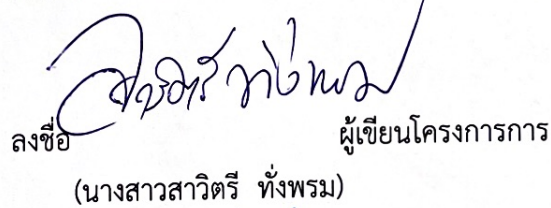 ลงชื่อ ผู้เขียนโครงการการ
(นางสาวสาวิตรี ทั่งพรม)